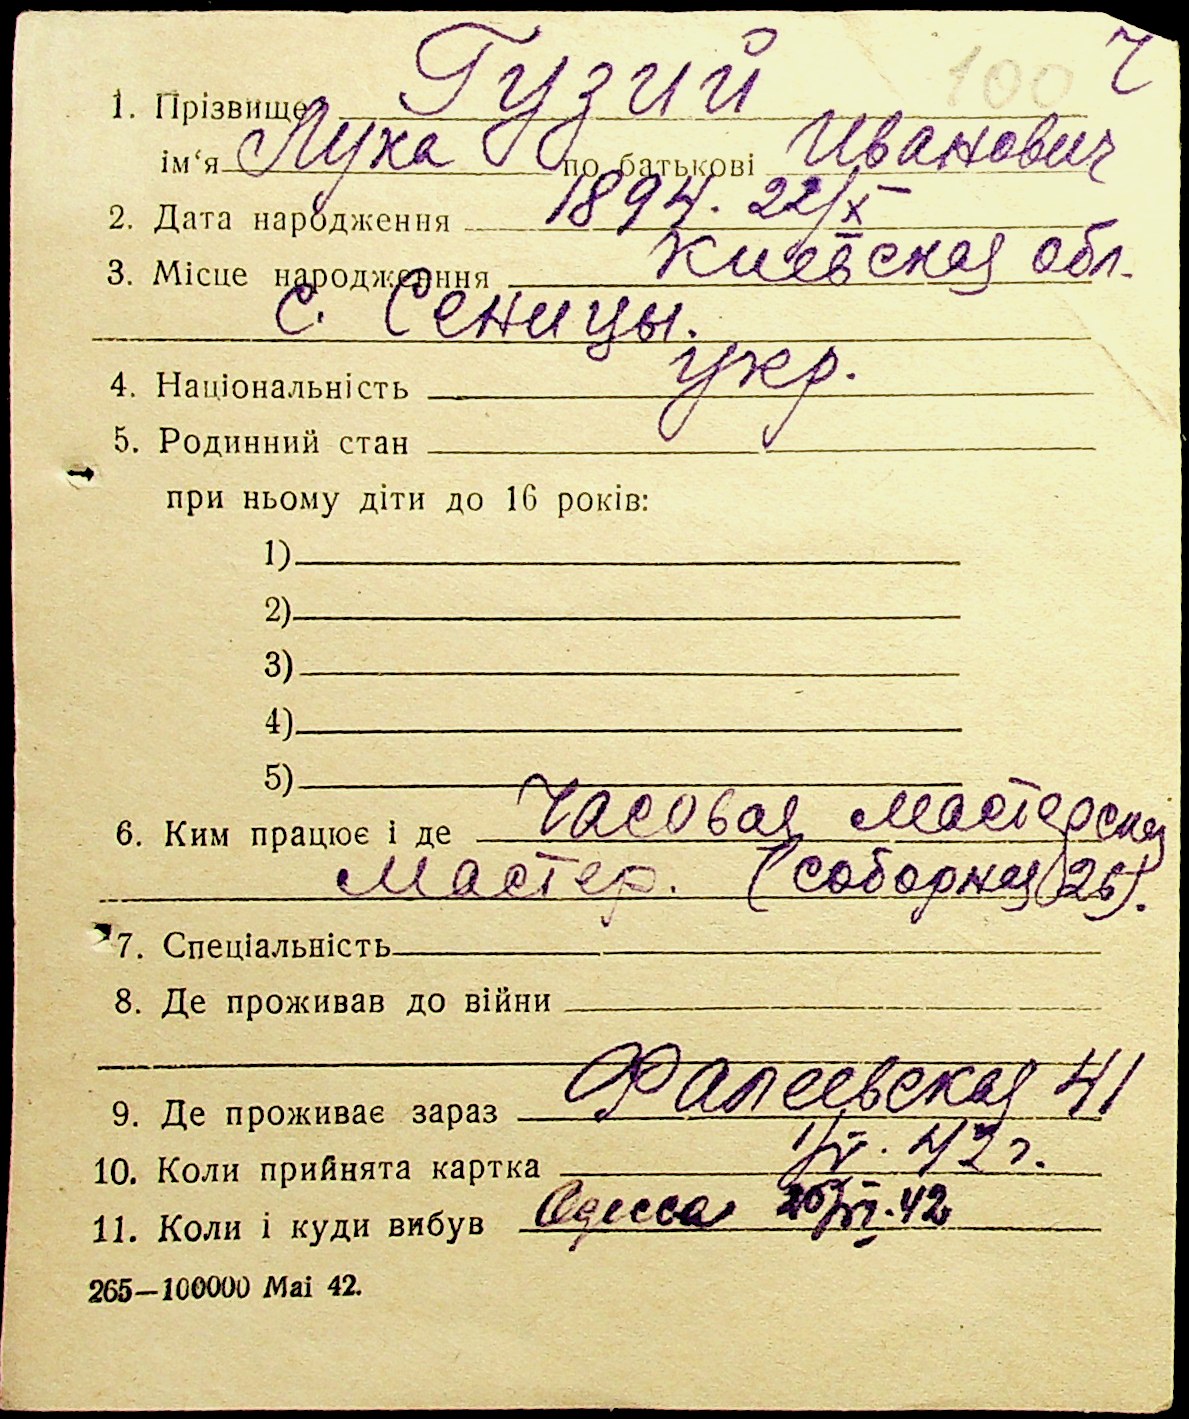 Ч
100
1. Прізвище Гузий
ім‘я Лука по батькові Иванович
2. Дата народження 1894. 22/X
3. Місце народження Киевская обл.
с. Сеницы.
4. Національність укр.
5. Родинний стан
при ньому діти до 16 років:
1)
2)
3)
4)
5)
6. Ким працює і де Часовая мастерская
мастер. (соборная 26).
7. Спеціальність
8. Де проживав до війни
9. Де проживає зараз Фалеевская 41
10. Коли прийнята картка 42 г.
11. Коли і куди вибув Одесса 42
265—100000 Mai 42.